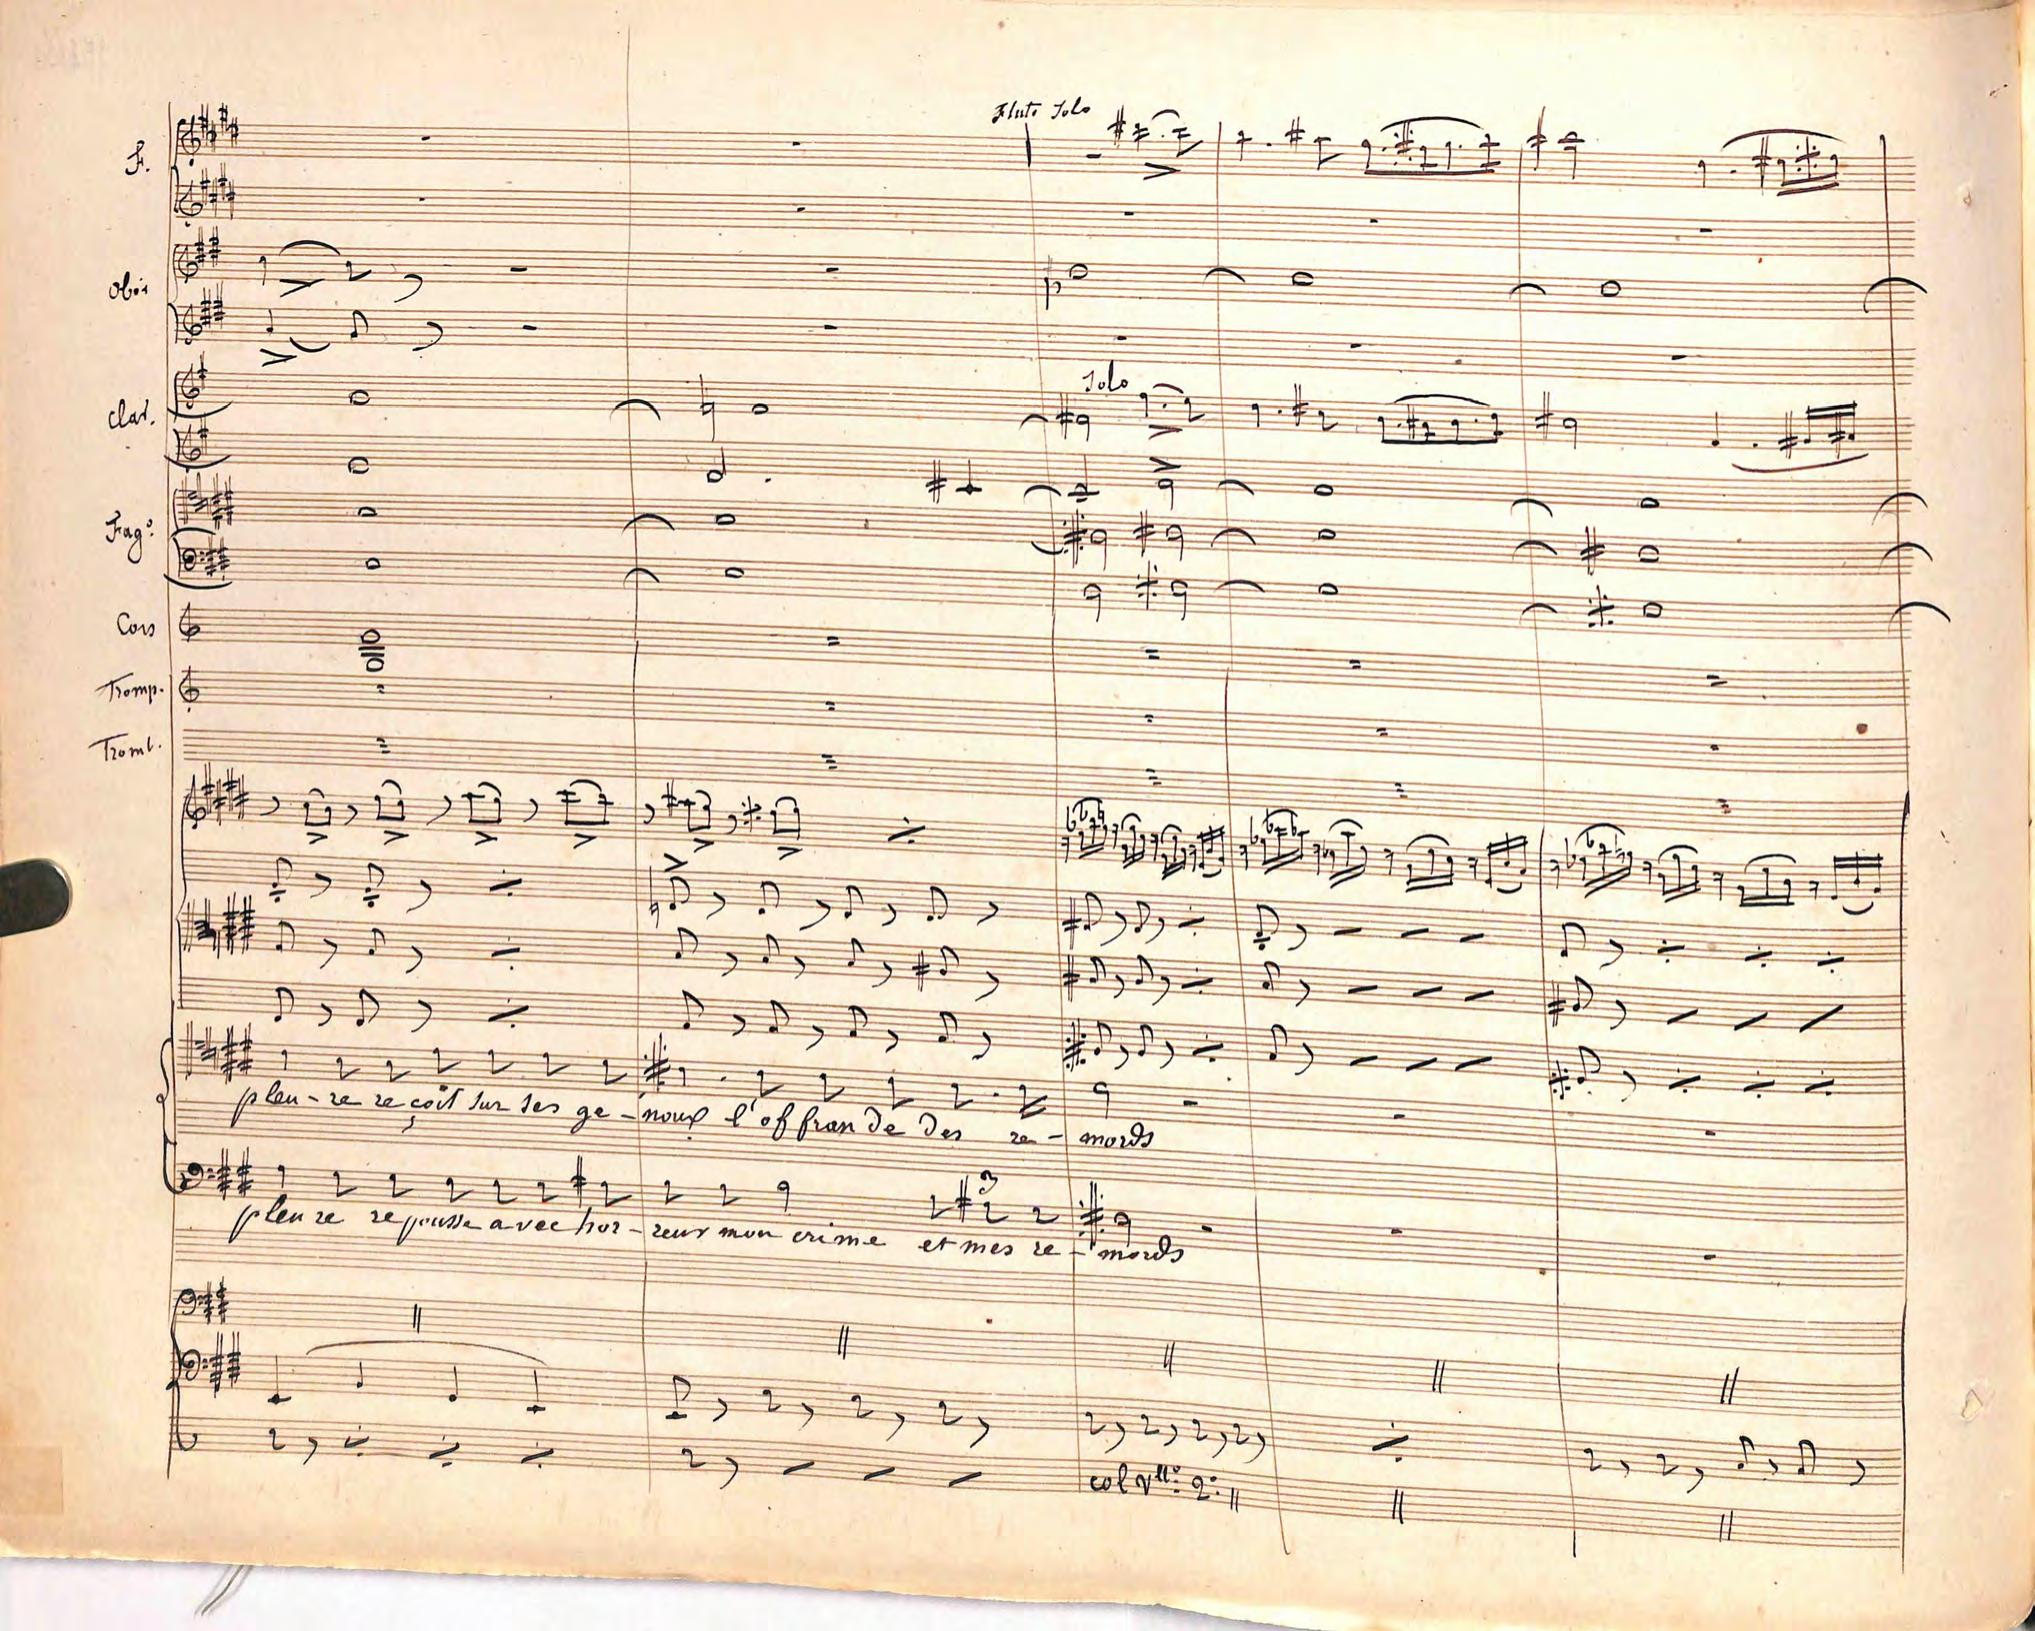 Flute Solo
F.
Obòi
Solo
Clar.
Fag:º
Cors
Tromp.
Tromb.
pleu-re reçoit sur ses ge-noux l'offrande des re-mords
3
pleure repousse avec hor-reur mon crime et mes re-mords
col Vllº: 2º: